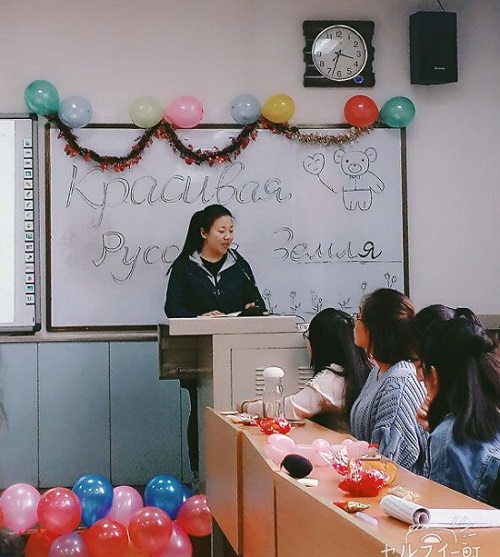 Красивая
Русс Земля
セルフィー町